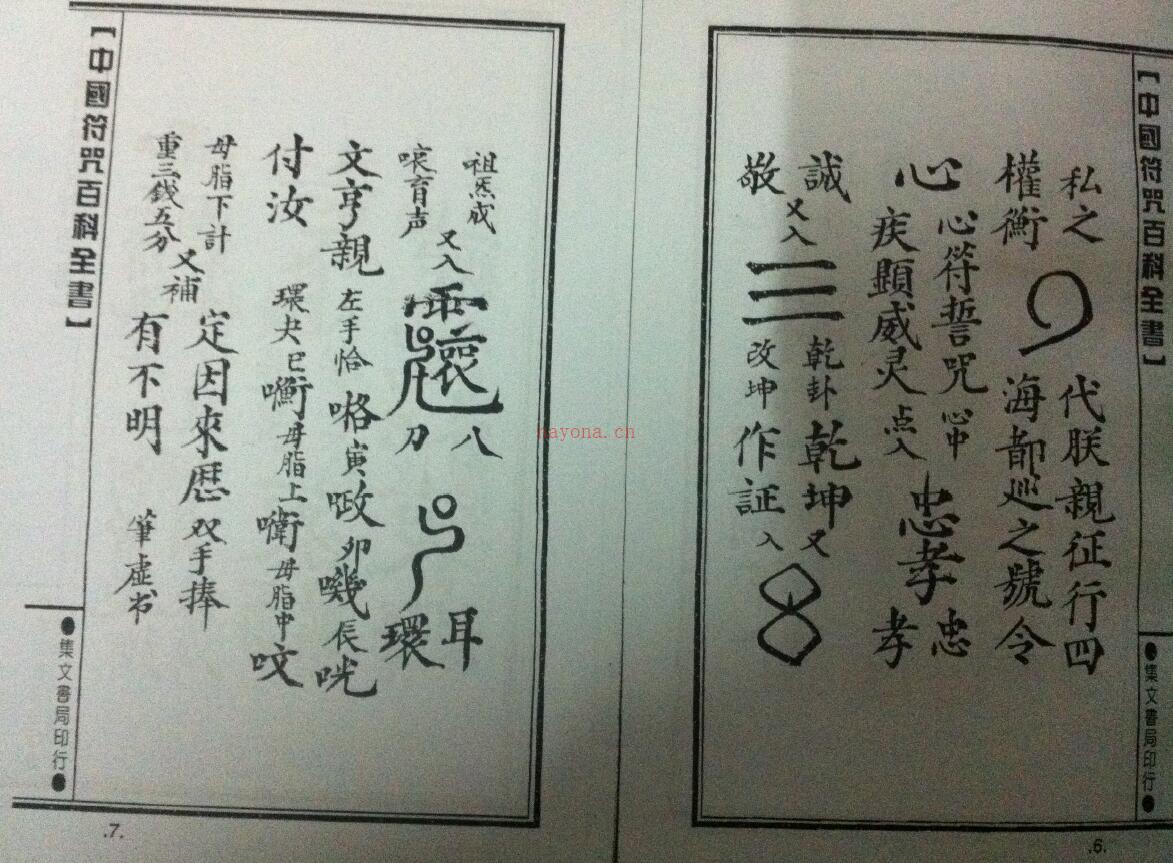 【中國符咒百科全書】
●集文書局印行●
私之
權衡
代朕親征行四
海都巡之號令
心
心符誓咒
疾顯威灵
心中
点入
忠孝
忠
孝
誠
敬
又入
三
乾卦
改坤
乾坤
作証
又
入
.6.
祖炁成
育声
又入
八
刀
耳
環
文亨親
左手
寅
卯
付汝
母脂上
母脂中
母脂下計
重三銭五分
又補
定因來歷
双手捧
有不明
筆虚书
【中國符咒百科全書】
●集文書局印行●
.7.
nayona.cn